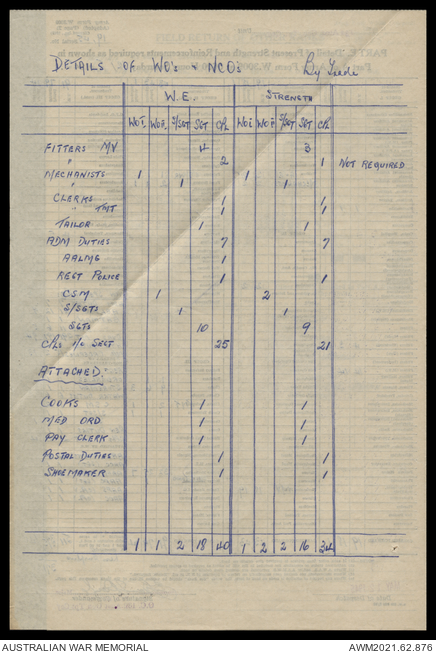 DETAILS OF WO's & NCO's By Trade
W.E. STRENGTH
WO I. WO II. S/SGT SGT CPL WO I WO II S/SGT SGT CPL
FITTERS MV 4 3
" 2 1 NOT REQUIRED
MECHANISTS 1 1
" 1 1
CLERKS 1 1
" TMT 1 1
TAILOR 1 1
ADM DUTIES 7 7
AALMG 1
REGT POLICE 1 1
CSM 1 2
S/SGTS 1 1
SGTS 10 9
CPLS I/C SECT 25 21
ATTACHED.
COOKS 1 1
MED ORD 1 1
PAY CLERK 1 1
POSTAL DUTIES 1 1
SHOEMAKER 1 1
1 1 2 18 40 1 2 2 16 34
AUSTRALIAN WAR MEMORIAL AWM2021.62.876